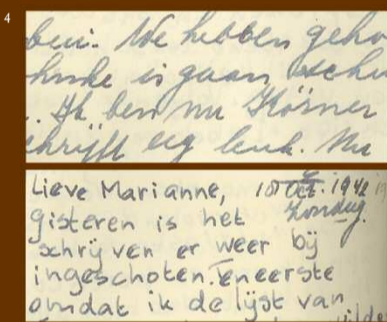 4
bui. We hebben geho
is gaan schu
. Ik ben nu Körner
chrijft erg leuk. Nu
Lieve Marianne, 18 Oct. 1942
Zondag.
gisteren is het
schrijven er weer bij
ingeschoten. Ten eerste
omdat ik de lijst van